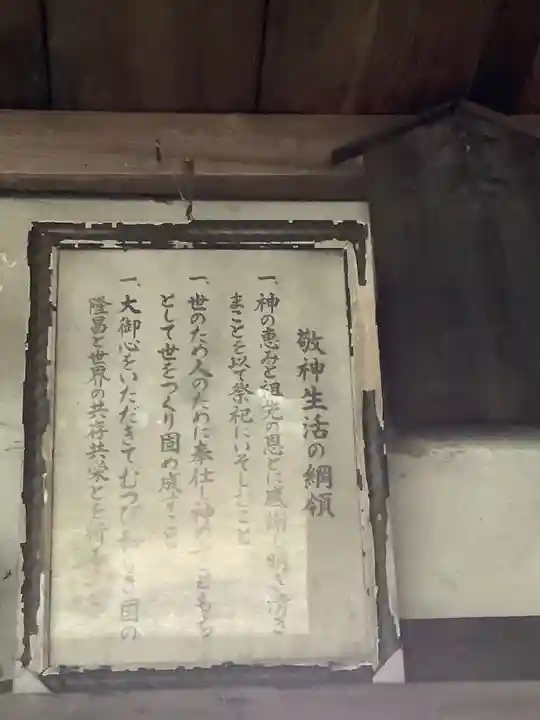 敬神生活の綱領
一、神の恵みと祖先の恩とに感謝し明き清き
まことを以て祭祀にいそしむこと
一、世のため人のために奉仕し神の
として世をつくり固め成すこと
一、大御心をいただきてむつび 国の
隆昌と世界の共存共栄とを祈ること